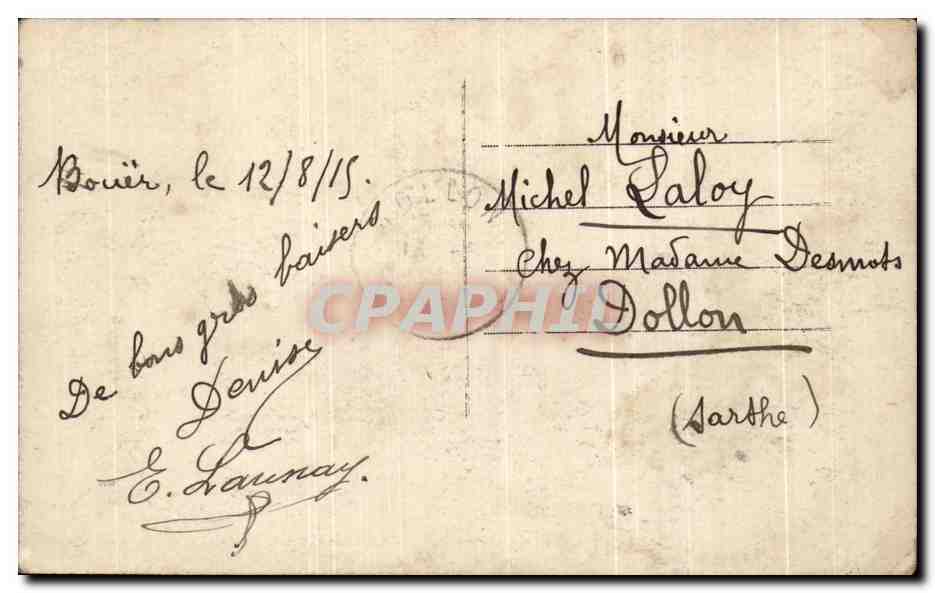 Bouër, le 12/8/15.
De bons gros baisers
Denise
E. Launay.
Monsieur
Michel Laloy
Chez Madame Desmots
Dollon
(Sarthe)
CPAPHIL